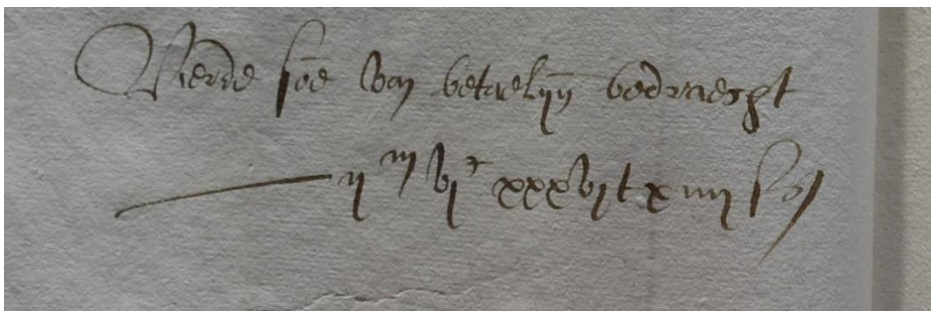 Vierde soe van betaelijn bedraecht
ij m vj c xxxvj t xiiij sol